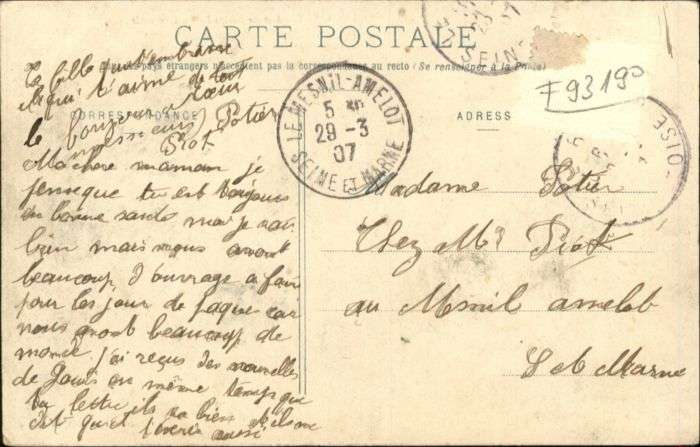 CARTE POSTALE
Tous les pays étrangers n'acceptent pas la correspondance au recto (Se renseigner à la Poste)
Ta fille qui t'embrasse
et qui t'aime de tout
cœur
le bonjour a
messieurs Potier
Piot
CORRESPONDANCE
ADRESS
LE MESNIL-AMELOT
5
29-3
07
SEINE ET MARNE
SEINE
OISE
F93190
Ma chere maman je
pense que tu est toujours
en bonne santé moi je vais
bien mais nous avont
beaucoup d'ouvrage a faire
pour les jour de paque car
nous avont beaucoup de
monde, j'ai reçus des nouvelles
de en même temps que
ta lettre ils va bien
Madame Potier
Chez Mr Piot
au Mesnil amelot
S et Marne